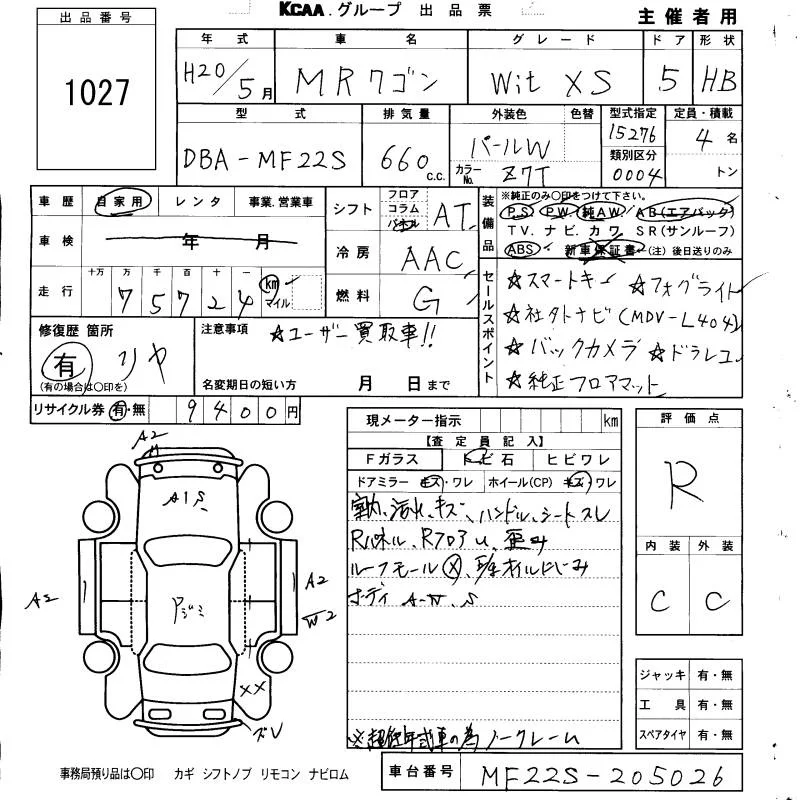 KCAA.グループ 出品票
主催者用
出品番号
1027
年式 車名 グレード ドア 形状
H20/5月 MRワゴン Wit XS 5 HB
型式 排気量 外装色 色替 型式指定 定員・積載
DBA-MF22S 660c.c. パールW 15276 4名
カラーNo. Z7T 類別区分 0004 トン
車歴 自家用 レンタ 事業.営業車
車検 年 月
走行 十万 万 千 百 十 一
75724 km マイル
シフト フロア コラム パネル AT
冷房 AAC
燃料 G
装備品 ※純正のみ○印をつけて下さい。
PS PW 純AW AB(エアバック)
TV.ナビ.カワ SR(サンルーフ)
ABS 新車保証書 (注)後日送りのみ
セールスポイント
☆スマートキー ☆フォグライト
☆社外ナビ(MDV-L404)
☆バックカメラ ☆ドラレコ
☆純正フロアマット
修復歴 箇所
有 リヤ
(有の場合は○印を)
注意事項 ☆ユーザー買取車!!
名変期日の短い方 月 日まで
リサイクル券 有・無 9400円
現メーター指示 km
【査定員記入】
Fガラス トビ石 ヒビワレ
ドアミラー キズ・ワレ ホイール(CP) キズ・ワレ
室内、汚れ、キズ、ハンドル、シートスレ
Rパネル、Rフロアu、歪み
ルーフモール×、オイルにじみ
ボディ A-W、S
※超低年式車の為ノークレーム
評価点
R
内装 外装
C C
ジャッキ 有・無
工具 有・無
スペアタイヤ 有・無
A2
A1S
A2
A2
W2
Pジミ
XX
ズレ
事務局預り品は○印 カギ シフトノブ リモコン ナビロム
車台番号 MF22S-205026